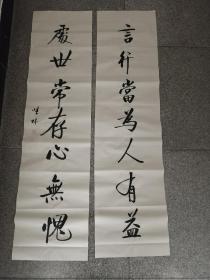 言行當為人有益
處世常存心無愧